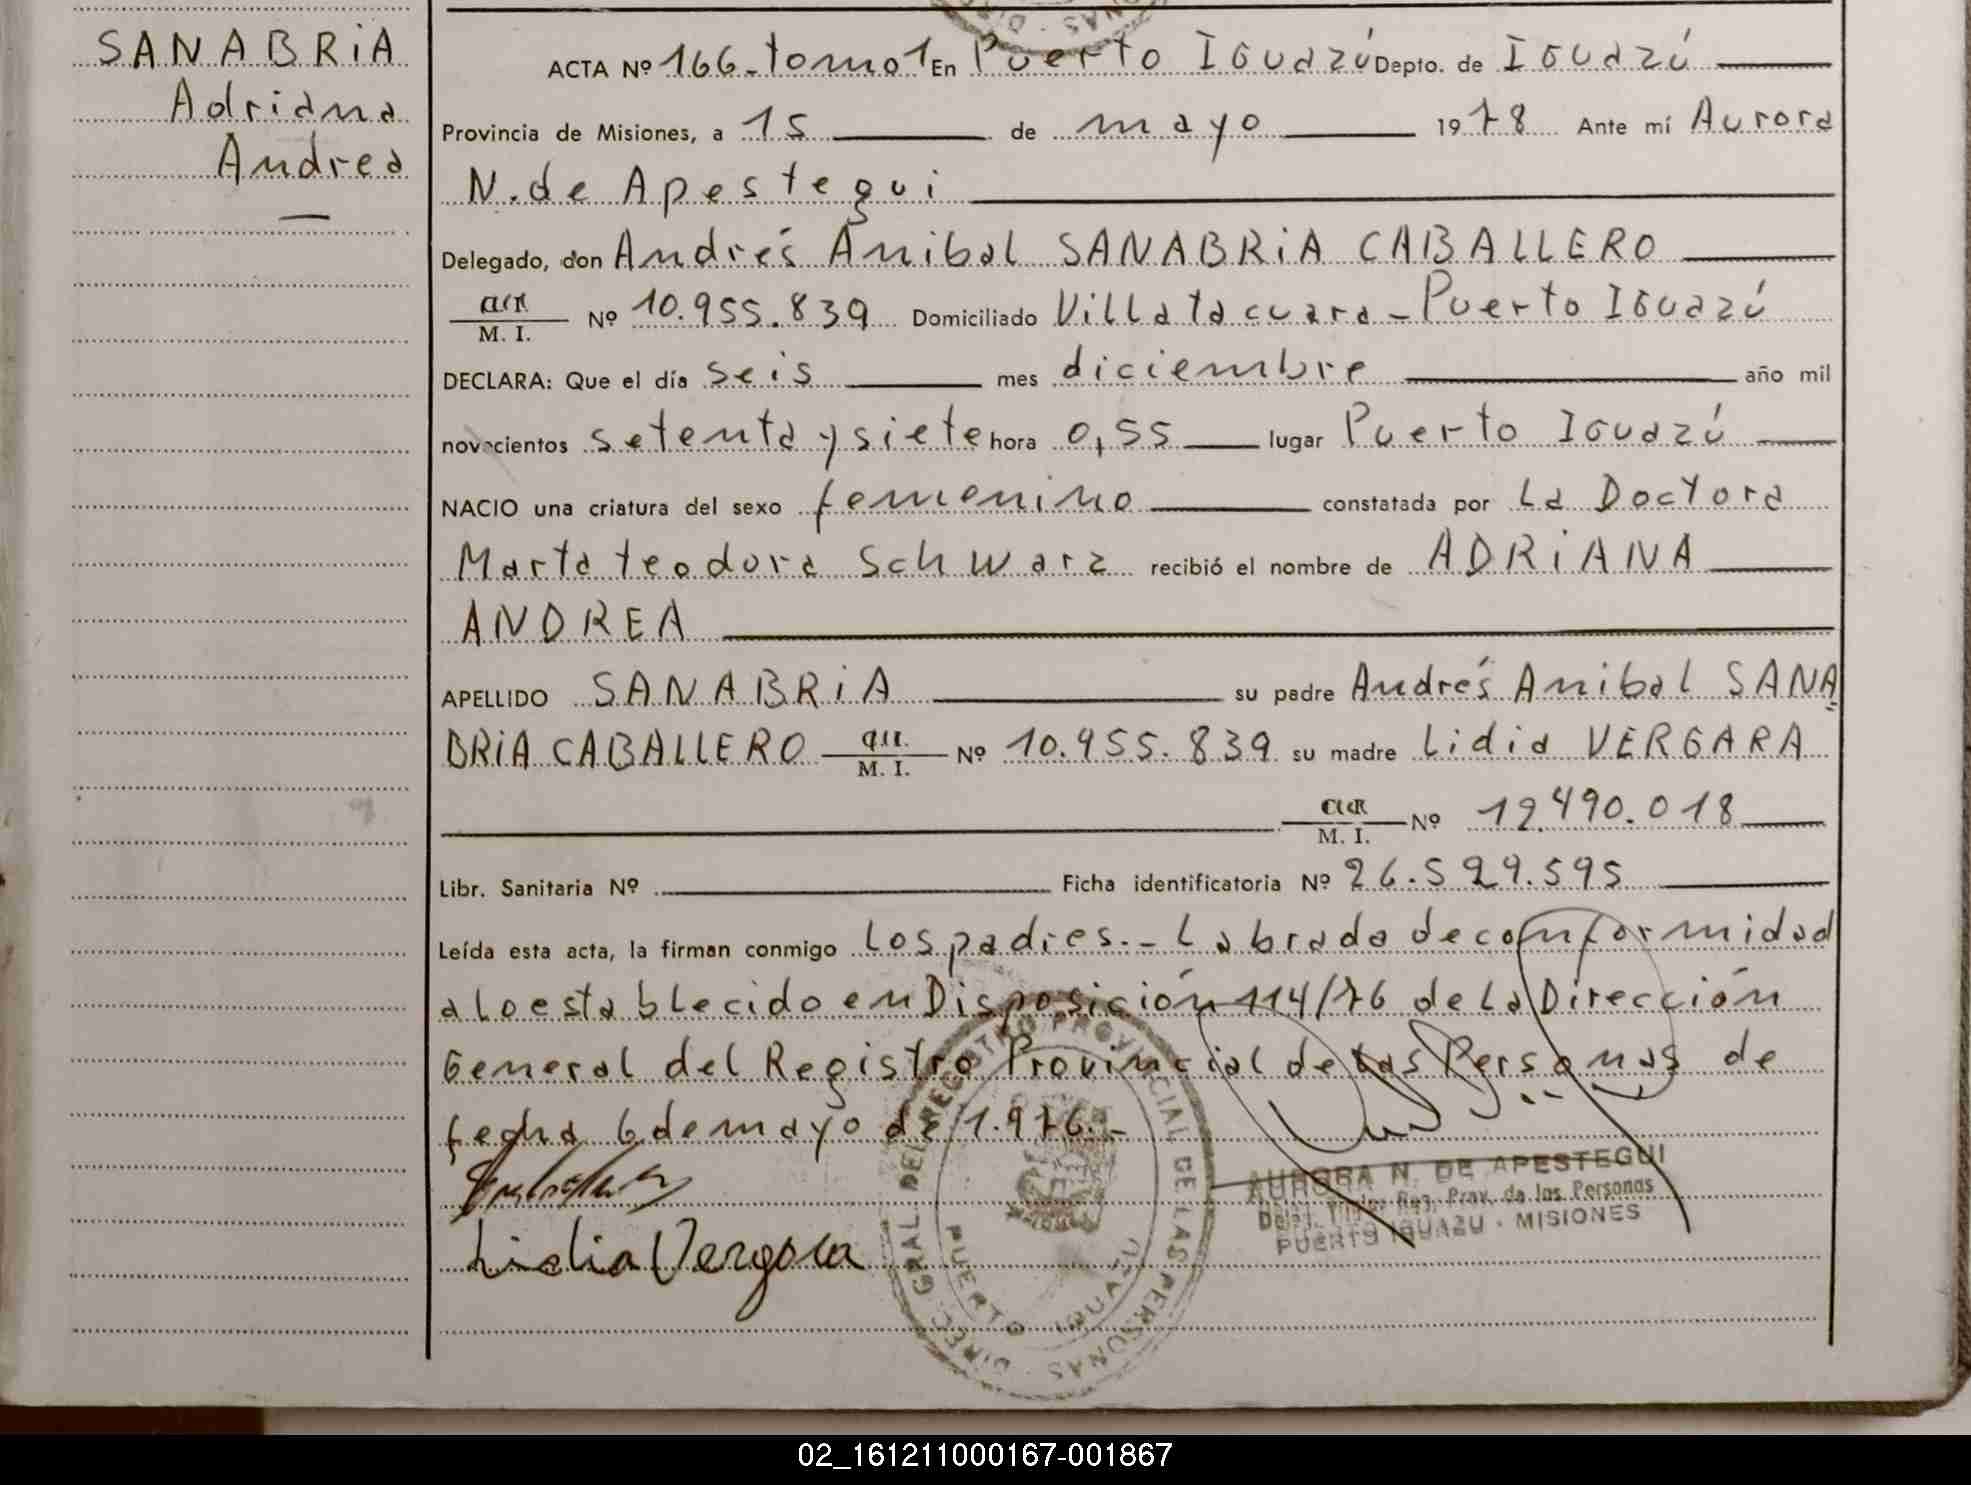 SANABRiA
Adriana
Andrea
ACTA Nº 166-tomo 1 En Puerto IGUAZÚ Depto. de IGUAZÚ
Provincia de Misiones, a 15 de mayo 1978 Ante mí Aurora
N. de Apestegui
Delegado, don Andrés Anibal SANABRiA CABALLERO
M. I. Nº 10.955.839 Domiciliado Villa tacuara - Puerto IGUAZÚ
DECLARA: Que el día seis mes diciembre año mil
novecientos setenta y siete hora 0,55 lugar Puerto IGUAZÚ
NACIO una criatura del sexo femenino constatada por La Doctora
Marta teodora Schwarz recibió el nombre de ADRiANA
ANDREA
APELLIDO SANABRiA su padre Andrés Anibal SANA
BRiA CABALLERO M. I. Nº 10.955.839 su madre Lidia VERGARA
M. I. Nº 12.490.018
Libr. Sanitaria Nº Ficha identificatoria Nº 26.529.595
Leída esta acta, la firman conmigo los padres.- Labrada de conformidad
a lo establecido en Disposición 114/76 de la Dirección
General del Registro Provincial de las Personas de
fecha 6 de mayo de 1.976.-
Lidia Vergara
DIREC. GRAL. DEL REGISTRO PROVINCIAL DE LAS PERSONAS
PUERTO IGUAZU
AURORA N. DE APESTEGUI
Deleg. Titular Reg. Prov. de las Personas
PUERTO IGUAZU - MISIONES
02_161211000167-001867